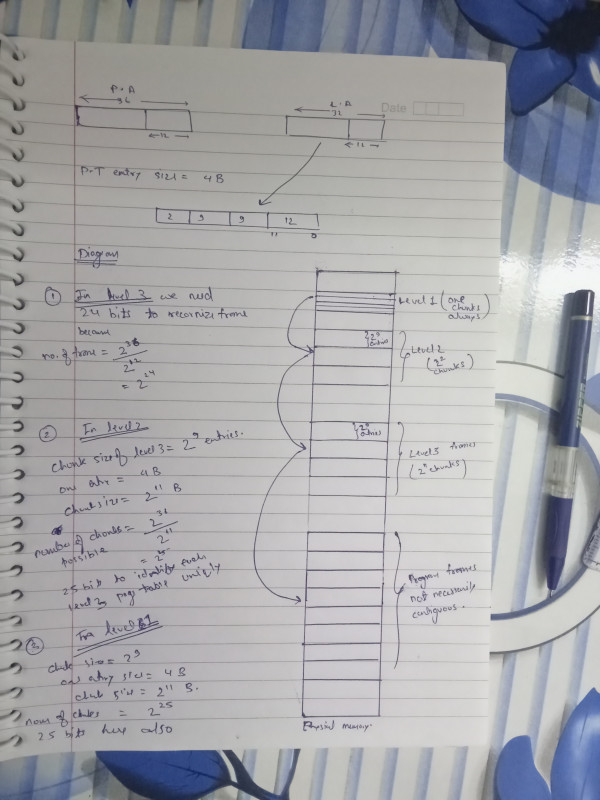 P.A
36
12
L.A
32
12
Date
P.T entry size = 4B
2 9 9 12
11 0
Diagram
① In level 3 we need
24 bits to recognize frame
because
no. of frame = 2^36 / 2^12
= 2^24
② In level 2
chunk size of level 3 = 2^9 entries.
one entry = 4B
chunk size = 2^11 B
number of chunks possible = 2^36 / 2^11
= 2^25
25 bits to identify each
level 3 page table uniquely
③ For level 1
chunk size = 2^9
one entry size = 4 B
chunk size = 2^11 B.
num of chunks = 2^25
25 bits here also
Level 1 (one chunks always)
2^9 entries
Level 2
(2^2 chunks)
2^9 entries
Level 3 frames
(2^11 chunks)
Program frames
not necessarily
contiguous.
Physical memory.